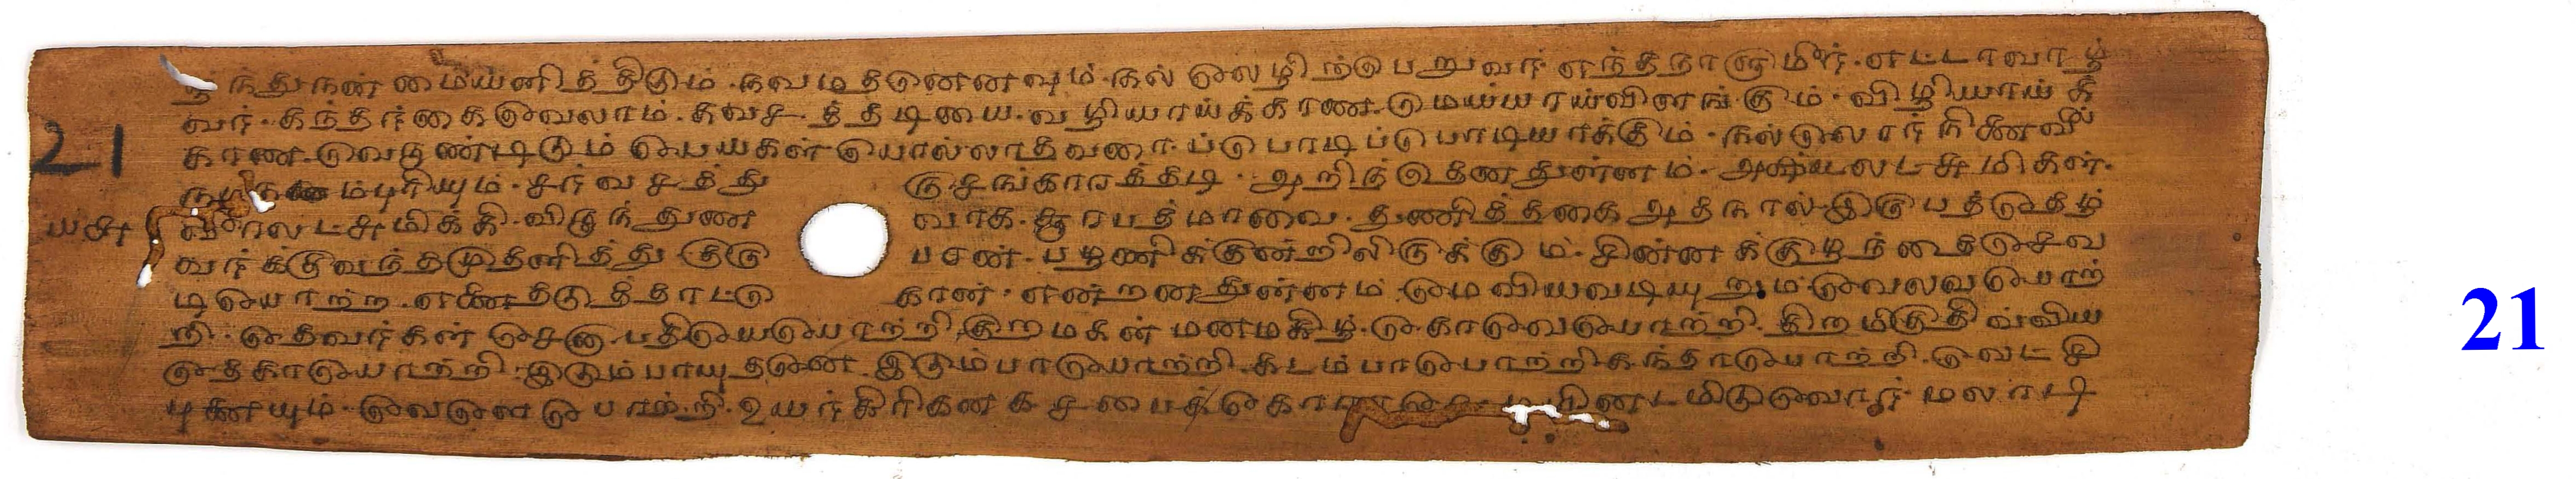 ந்து நன்மையளித்திடும். நவமதனெனவும். நல் லெழில் பெறுவர். எந்த நாளுமீர். எட்டா வாழ்
வர். கந்தர் கை வேலாம். கவசத்தடியை. வழியாய்க் காண. மெய்யாய் விளங்கும். விழியாய்க்
காண. வெருண்டிடும் பேய்கள் பொல்லாதவரைப் பொடிப் பொடியாக்கும். நல்லோர் நினைவில்
ம் புரியும். சர்வ சத்து ரு சங்காரத்தடி. அறிந்தெனதுள்ளம். அஷ்ட லட்சுமிகள்.
21
யச லட்சுமிக்கி. விருந்துண வாக. சூரபத்மாவை. துணித்தகை அதனால் இருபத்தேழ்
வர்க்குவந்தமுதளித்து குரு பரன். பழணி க்குன்றிலிருக்கும். சின்னக்குழந்தை சேவ
டி போற்றி. எனை தடுத்தாட்டு கொள். என்றனதுள்ளம் மேவிய வடிவுறும் வேலவ போற்
றி. தேவர்கள் சேனாபதியே போற்றி, குறமகள் மனமகிழ். கோவே போற்றி. திறமிகு திவ்விய
தேகா போற்றி. இடும்பாயுதனே இடும்பா போற்றி. கடம்பா போற்றி கந்தா போற்றி. வெட்சி
புனையும். வேளே போற்றி. உயர்கிரி கனக சபைக் னடமிடுவோர் மலரடி
21